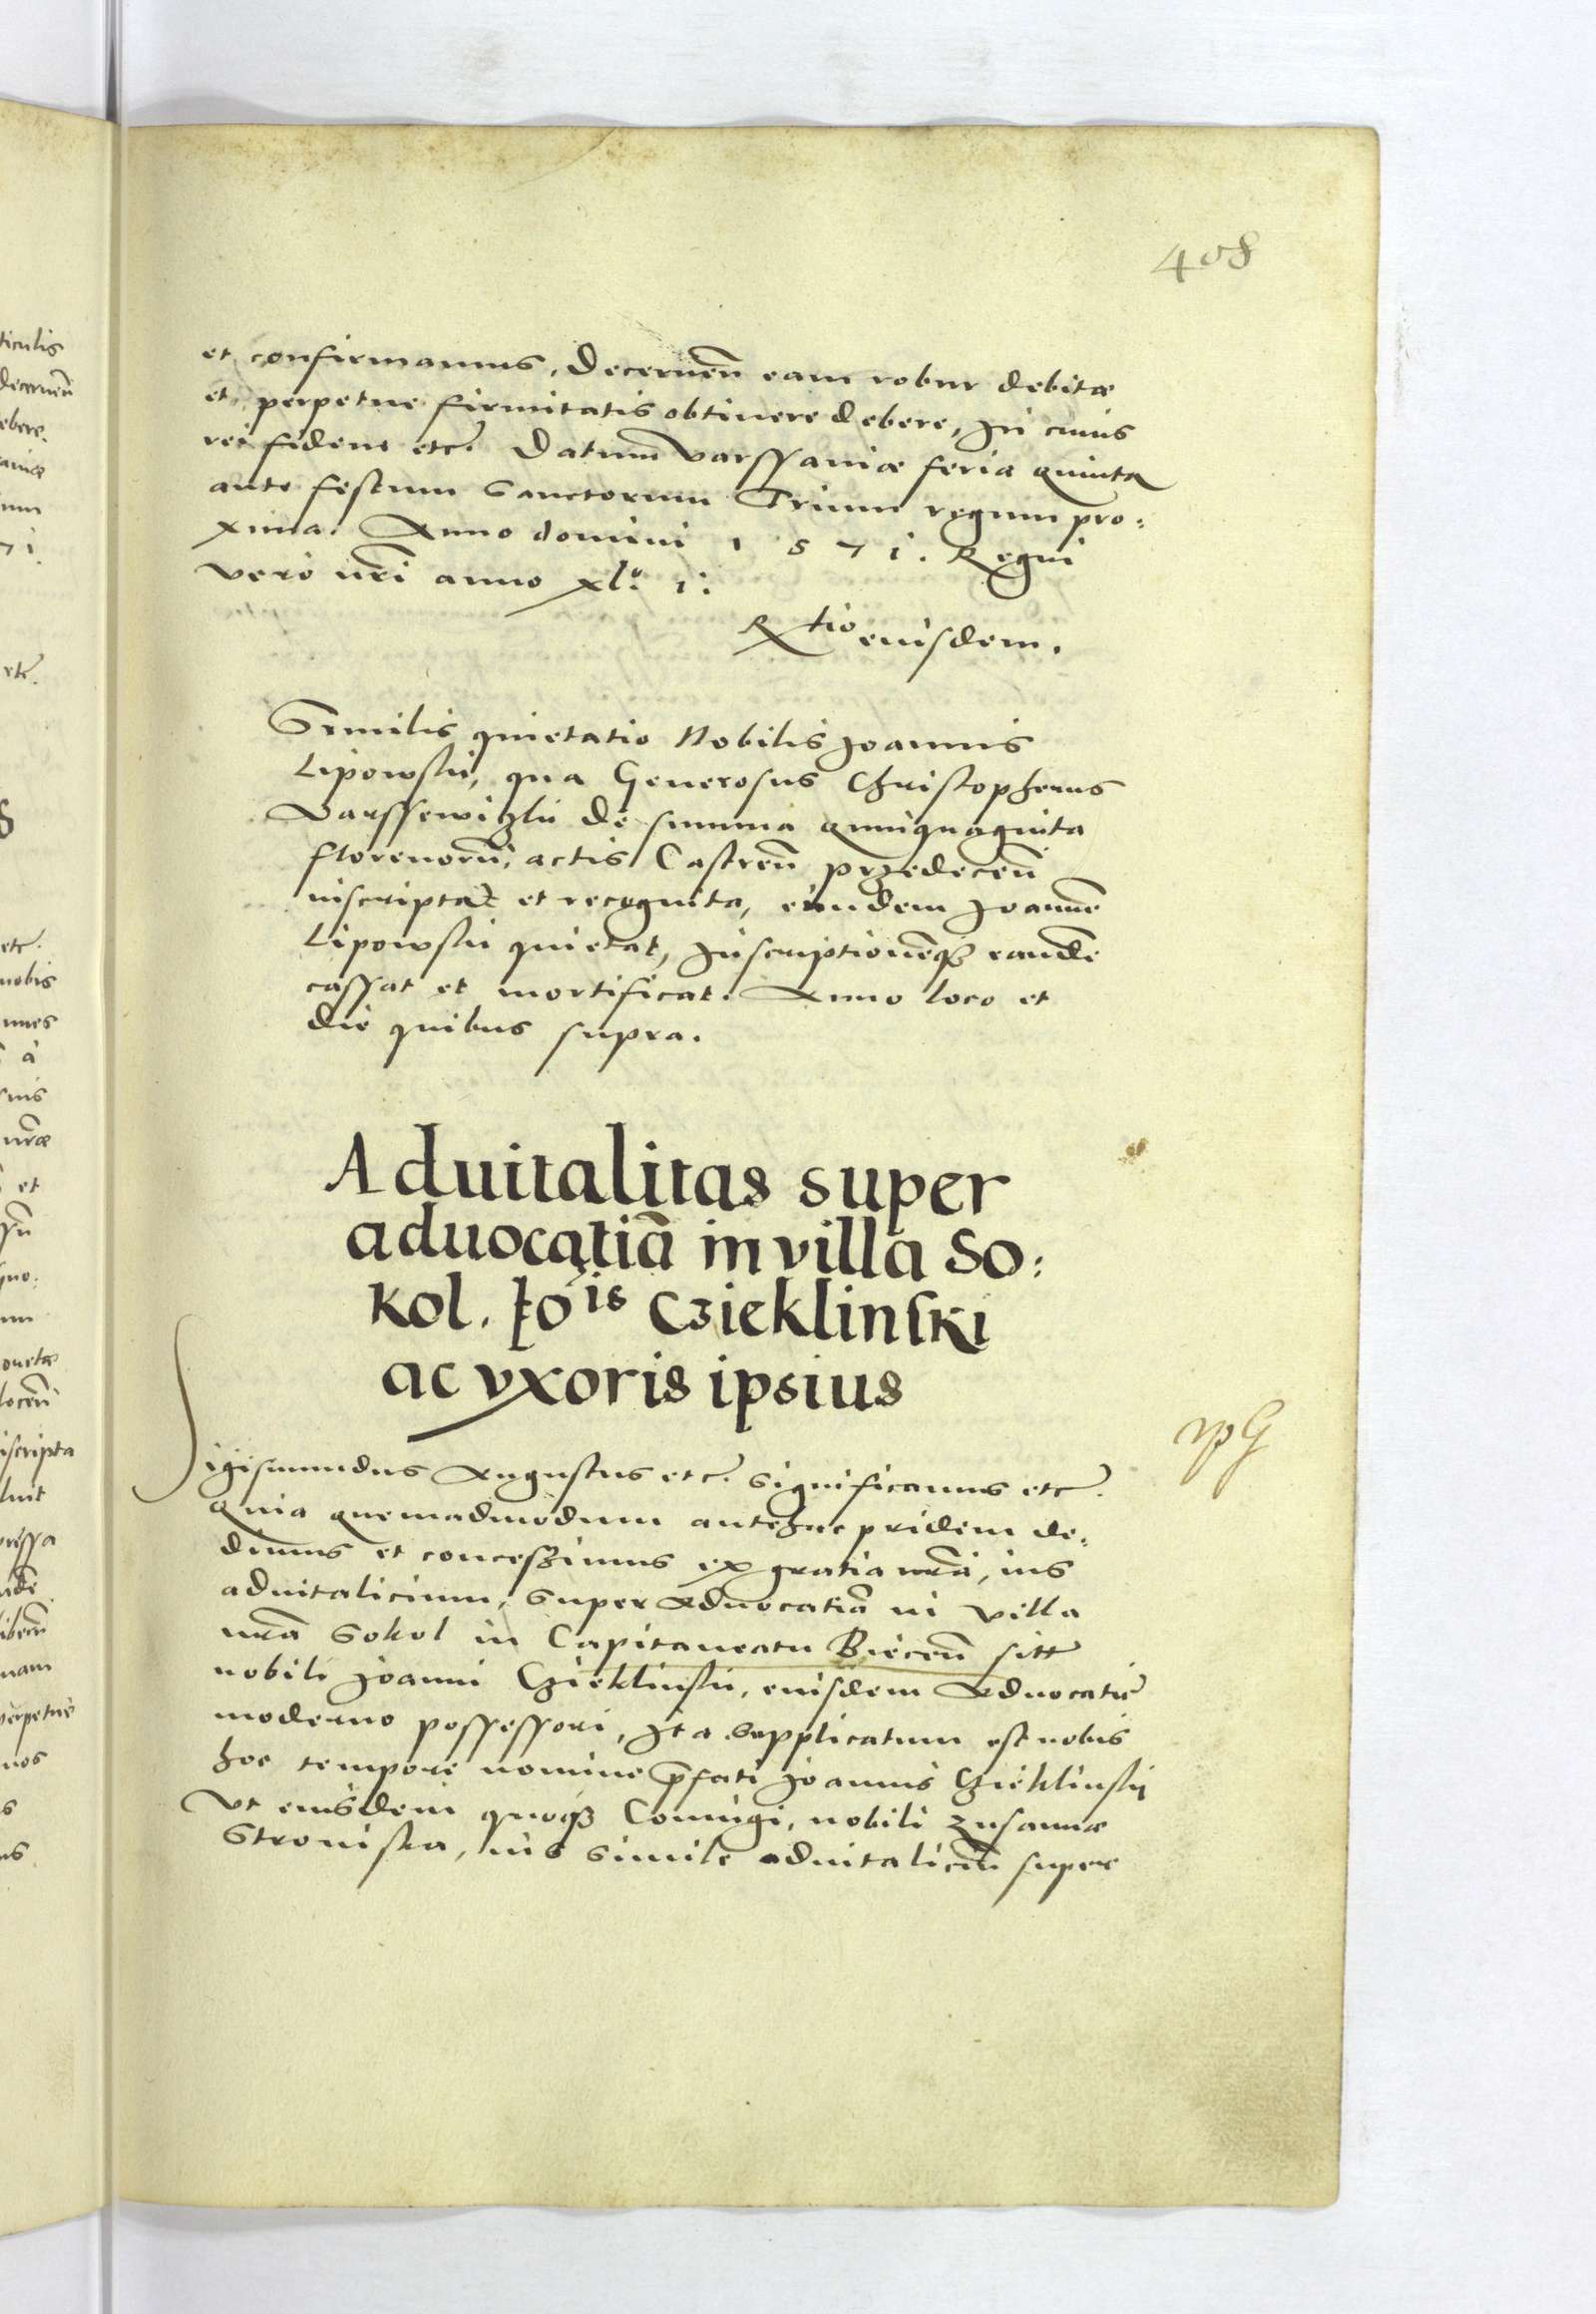 408
et confirmamus, decernen̄ eam robur debitæ
et perpetue firmitatis obtinere debere, In cuius
rei fidem etc. Datum varssaviæ feria quinta
ante festum Sanctorum Trium regum pro:
xima. Anno domini 1 5 7 1. Regni
vero nr̄i anno xlº 1º
Rtio eiusdem.
Similis quietatio Nobilis Joannis
Lipowski, qua Generosus Christopherus
Varssewitzki de summa quinquaginta
florenorū, actis Castren̄ przedecen̄
inscripta et recognita, eundem Joannē
Lipowski quietat, Inscriptionēq3 eandē
cassat et mortificat. Anno loco et
die quibus supra.
Aduitalitas super
aduocatiā in villa So:
kol. Jois Czieklinski
ac vxoris ipsius
Sigismundus Augustus etc. Significamus etc.
Quia quemadmodum antehac pridem de:
dimus et concessimus ex gratia nrā, ius
aduitalicium, Super Aduocatiā in villa
nrā Sokol in Capitaneatu Biecen̄ sitt
nobili Joanni Czieklinski, eiusdem Aduocatiē
moderno possessori, Ita supplicatum est nobis
hoc tempore nomine p̄fati Joannis Czieklinskij
Vt eiusdem quoq3 Coniugi, nobili Zusannæ
Stroniska, ius simile aduitaliciū super